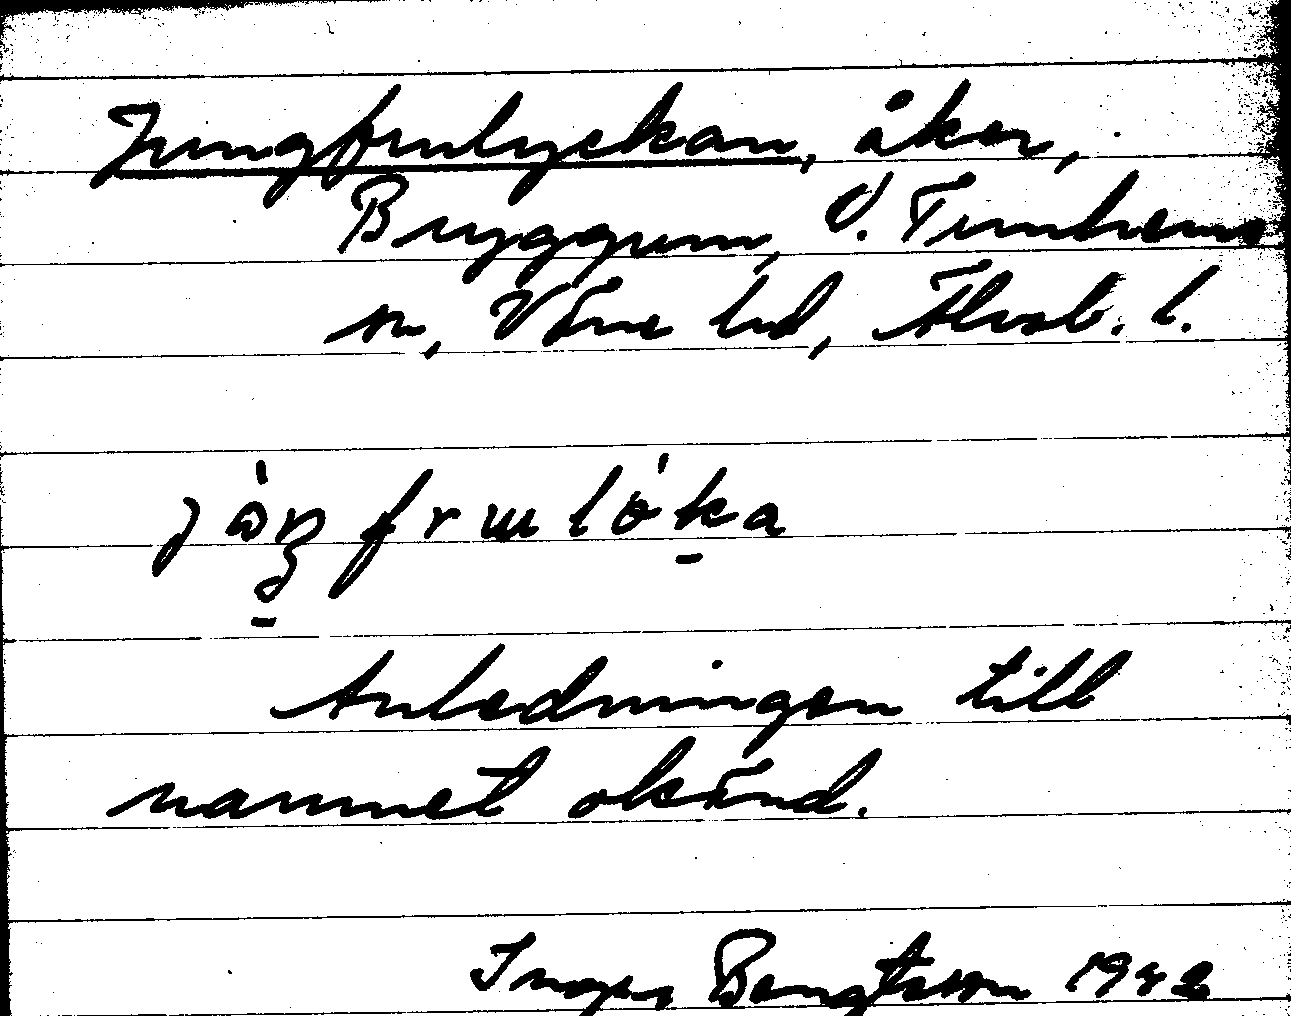 Jungfrulyckan, åker,
Bryggum, V. Tunhems
sn, Väne hd, Älvsb. l.
Anledningen till
namnet okänd.
Bengtsson 1942